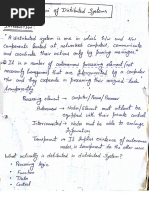 of Distributed Systems
Introduction
"A distributed system is one in which H/w and S/w
components located at networked computers communicate
and coordinate their actions only by passing messages."
It is a number of autonomous processing element (not
necessarily homogeneous) that are interconnected by a computer
N/w and cooperate in performing their assigned
Processing element → Computer/Node/Processor
Autonomous → Nodes/Element must atleast be
equipped with their private control
Interconnected → Nodes must be able to exchange
information
Transparent → It hides existence of autonomous
nodes, is transparent to the user
What actually is distributed in a distributed System?
Processing logic
Function
Data
Control